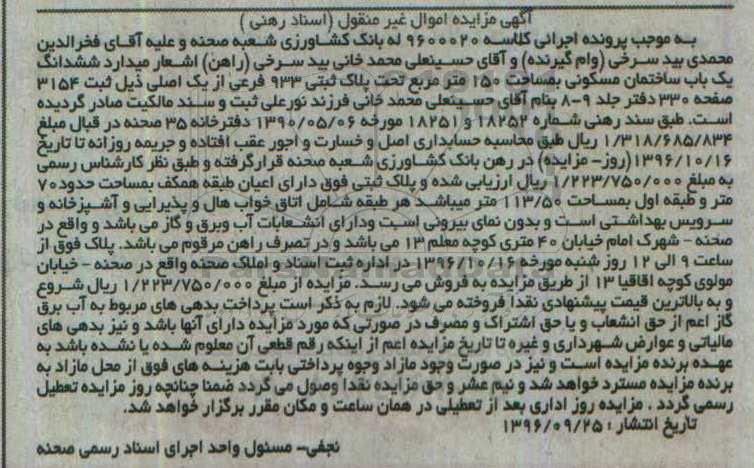 آگهی مزایده اموال غیر منقول (اسناد رهنی)
به موجب پرونده اجرائی کلاسه ۹۶۰۰۰۲۰ له بانک کشاورزی شعبه صحنه و علیه آقای فخرالدین
محمدی بید سرخی (وام گیرنده) و آقای حسینعلی محمد خانی بید سرخی (راهن) اشعار میدارد ششدانگ
یک باب ساختمان مسکونی بمساحت ۲۵۰ متر مربع تحت پلاک ثبتی ۹۳۳ فرعی از یک اصلی ذیل ثبت ۳۱۵۴
صفحه ۳۳۰ دفتر جلد ۹-۸ بنام آقای حسینعلی محمد خانی فرزند نورعلی ثبت و سند مالکیت صادر گردیده
است. طبق سند رهنی شماره ۱۸۲۵۲ و ۱۸۲۵۱ مورخه ۱۳۹۰/۰۵/۰۶ دفترخانه ۳۵ صحنه در قبال مبلغ
۱/۳۱۸/۶۸۵/۸۳۴ ریال طبق محاسبه حسابداری اصل و خسارت و اجور عقب افتاده و جریمه روزانه تا تاریخ
۱۳۹۶/۱۰/۱۶(روز- مزایده) در رهن بانک کشاورزی شعبه صحنه قرارگرفته و طبق نظر کارشناس رسمی
به مبلغ ۱/۲۲۳/۷۵۰/۰۰۰ ریال ارزیابی شده و پلاک ثبتی فوق دارای اعیان طبقه همکف بمساحت حدود۷۰
متر و طبقه اول بمساحت ۱۱۳/۵۰ متر میباشد هر طبقه شامل اتاق خواب هال و پذیرایی و آشپزخانه و
سرویس بهداشتی است و بدون نمای بیرونی است ودارای انشعابات آب وبرق و گاز می باشد و واقع در
صحنه - شهرک امام خیابان ۴۰ متری کوچه معلم ۱۳ می باشد و در تصرف راهن مرقوم می باشد. پلاک فوق از
ساعت ۹ الی ۱۲ روز شنبه مورخه ۱۳۹۶/۱۰/۱۶ در اداره ثبت اسناد و املاک صحنه واقع در صحنه - خیابان
مولوی کوچه اقاقیا ۱۳ از طریق مزایده به فروش می رسد. مزایده از مبلغ ۱/۲۲۳/۷۵۰/۰۰۰ ریال شروع
و به بالاترین قیمت پیشنهادی نقدا فروخته می شود. لازم به ذکر است پرداخت بدهی های مربوط به آب برق
گاز اعم از حق انشعاب و یا حق اشتراک و مصرف در صورتی که مورد مزایده دارای آنها باشد و نیز بدهی های
مالیاتی و عوارض شهرداری و غیره تا تاریخ مزایده اعم از اینکه رقم قطعی آن معلوم شده یا نشده باشد به
عهده برنده مزایده است و نیز در صورت وجود مازاد وجوه پرداختی بابت هزینه های فوق از محل مازاد به
برنده مزایده مسترد خواهد شد و نیم عشر و حق مزایده نقدا وصول می گردد ضمنا چنانچه روز مزایده تعطیل
رسمی گردد ، مزایده روز اداری بعد از تعطیلی در همان ساعت و مکان مقرر برگزار خواهد شد.
تاریخ انتشار : ۱۳۹۶/۰۹/۲۵
نجفی- مسئول واحد اجرای اسناد رسمی صحنه